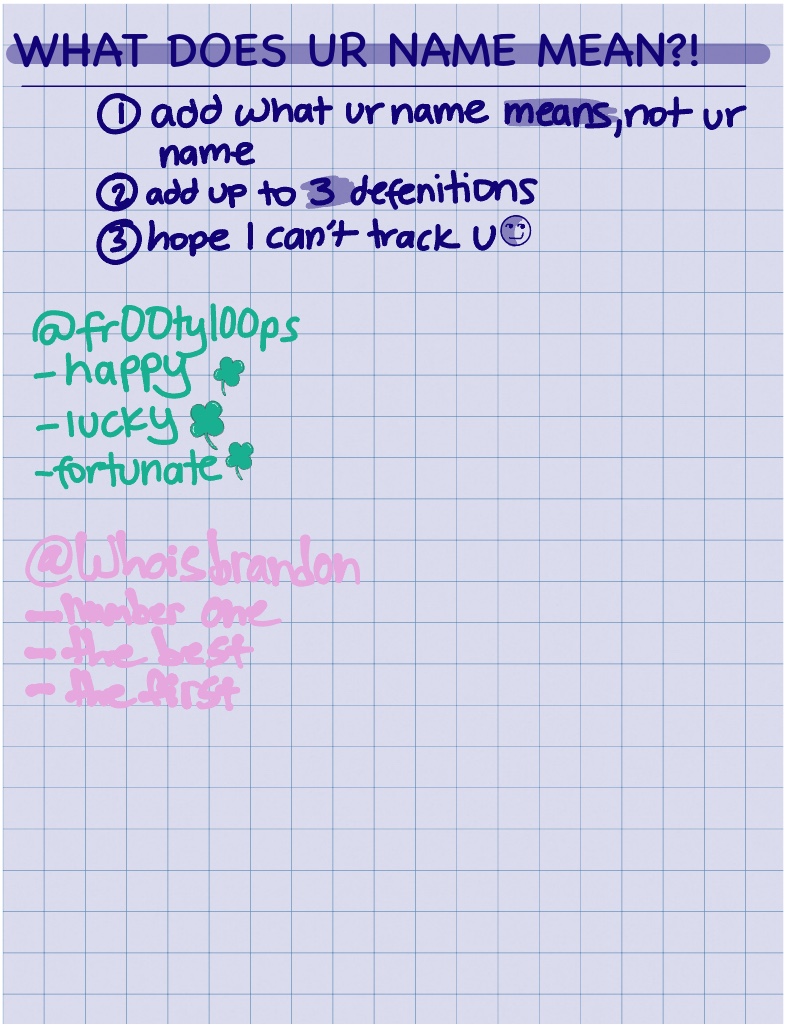 WHAT DOES UR NAME MEAN?!
① add what ur name means, not ur
name
② add up to 3 defenitions
③ hope I can't track u
@fr00tyl00ps
- happy
- lucky
- fortunate
@Whoisbrandon
- number one
- the best
- the first